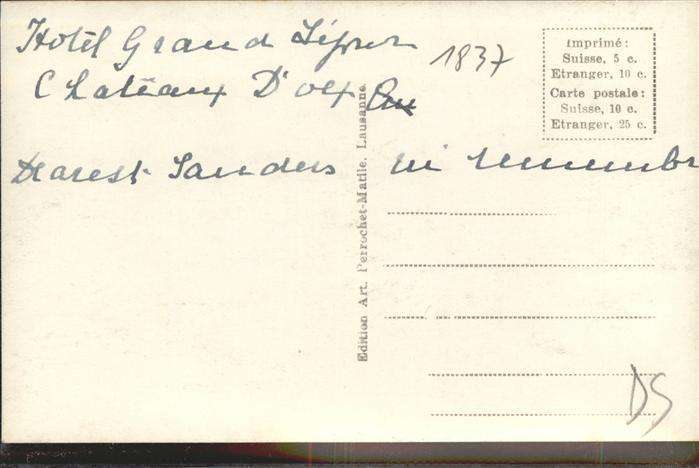 Hotel Grand Séjour
Chateaux D'oex
1837
Imprimé:
Suisse, 5 c.
Etranger, 10 c.
Carte postale:
Suisse, 10 c.
Etranger, 25 c.
Dearest Sanders in remembr
Edition Art. Perrochet-Matile, Lausanne
DS